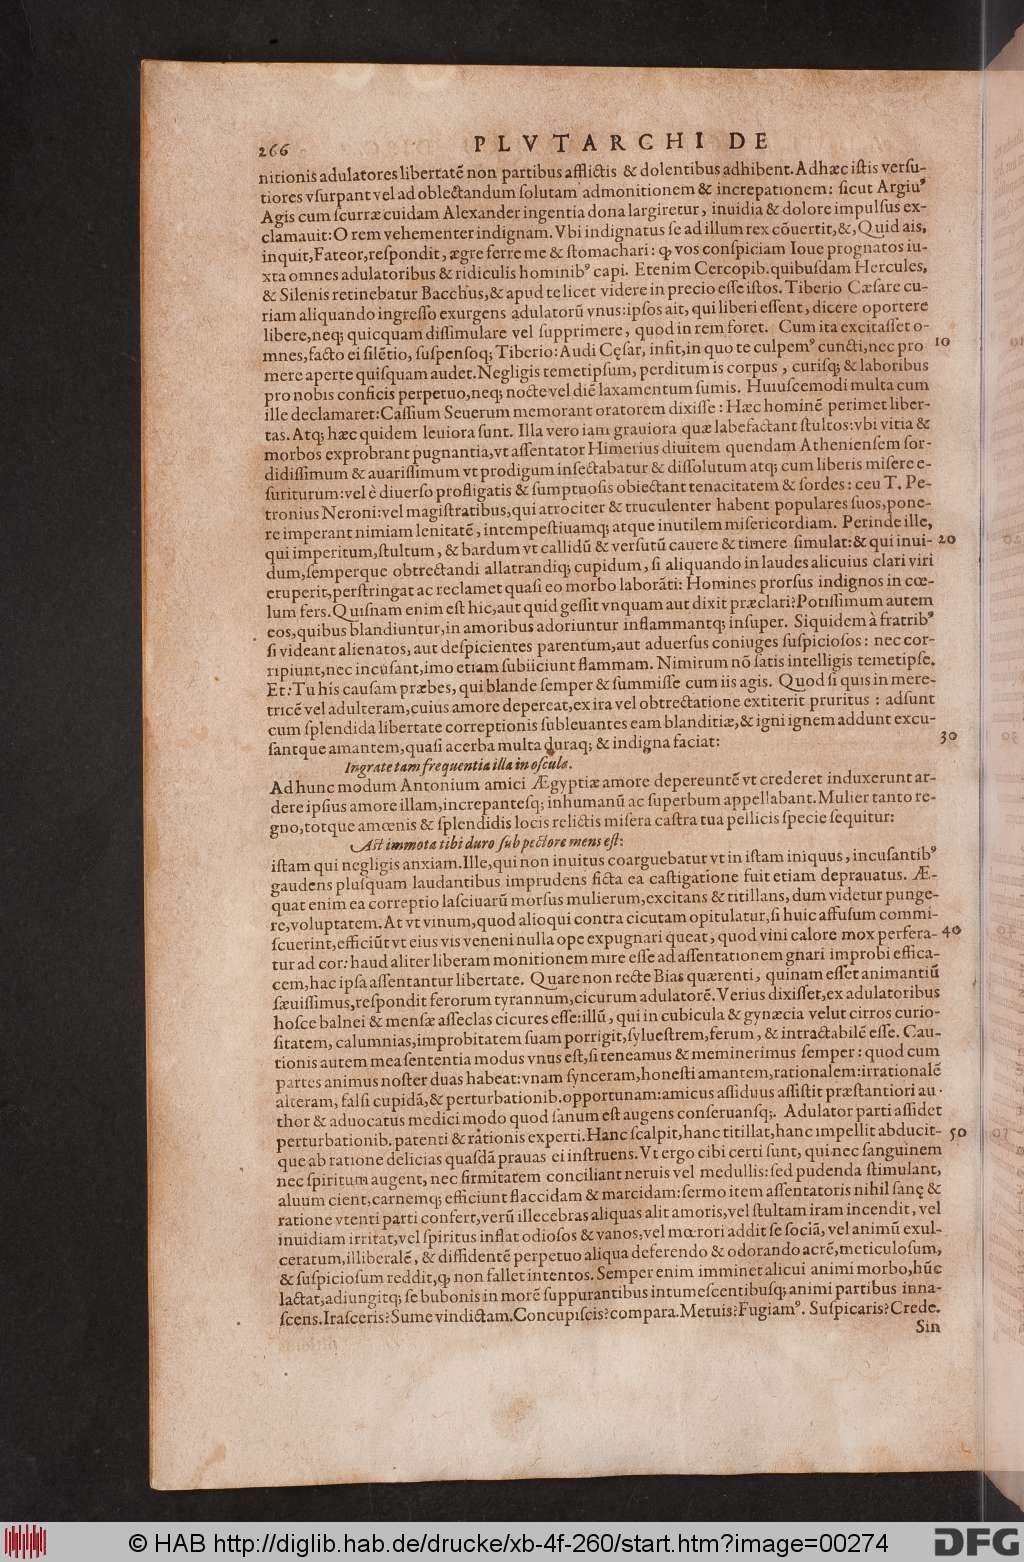 266 PLVTARCHI DE
nitionis adulatores libertatē non partibus afflictis & dolentibus adhibent. Ad hæc istis versu-
tiores vsurpant vel ad oblectandum solutam admonitionem & increpationem: sicut Argiuꝰ
Agis cum scurræ cuidam Alexander ingentia dona largiretur, inuidia & dolore impulsus ex-
clamauit: O rem vehementer indignam. Vbi indignatus se ad illum rex cōuertit, &, Quid ais,
inquit, Fateor, respondit, ægre ferre me & stomachari: ꝙ vos conspiciam Ioue prognatos iu-
xta omnes adulatoribus & ridiculis hominibꝰ capi. Etenim Cercopib. quibusdam Hercules,
& Silenis retinebatur Bacchus, & apud te licet videre in precio esse istos. Tiberio Cæsare cu-
riam aliquando ingresso exurgens adulatorū vnus: ipsos ait, qui liberi essent, dicere oportere
libere, neq; quicquam dissimulare vel supprimere, quod in rem foret. Cum ita excitasset o-
mnes, facto ei silētio, suspensoq; Tiberio: Audi Cęsar, infit, in quo te culpemꝰ cuncti, nec pro 10
mere aperte quisquam audet. Negligis temetipsum, perditum is corpus, curisq; & laboribus
pro nobis conficis perpetuo, neq; nocte vel diē laxamentum sumis. Huiuscemodi multa cum
ille declamaret: Cassium Seuerum memorant oratorem dixisse: Hæc hominē perimet liber-
tas. Atq; hæc quidem leuiora sunt. Illa vero iam grauiora quæ labefactant stultos: vbi vitia &
morbos exprobrant pugnantia, vt assentator Himerius diuitem quendam Atheniensem sor-
didissimum & auarissimum vt prodigum insectabatur & dissolutum atq; cum liberis misere e-
suriturum: vel è diuerso profligatis & sumptuosis obiectant tenacitatem & sordes: ceu T. Pe-
tronius Neroni: vel magistratibus, qui atrociter & truculenter habent populares suos, pone-
re imperant nimiam lenitatē, intempestiuamq; atque inutilem misericordiam. Perinde ille,
qui imperitum, stultum, & bardum vt callidū & versutū cauere & timere simulat: & qui inui- 20
dum, semperque obtrectandi allatrandiq; cupidum, si aliquando in laudes alicuius clari viri
eruperit, perstringat ac reclamet quasi eo morbo laborāti: Homines prorsus indignos in cœ-
lum fers. Quisnam enim est hic, aut quid gessit vnquam aut dixit præclari? Potissimum autem
eos, quibus blandiuntur, in amoribus adoriuntur inflammantq; insuper. Siquidem à fratribꝰ
si videant alienatos, aut despicientes parentum, aut aduersus coniuges suspiciosos: nec cor-
ripiunt, nec incusant, imo etiam subiiciunt flammam. Nimirum nō satis intelligis temetipse.
Et: Tu his causam præbes, qui blande semper & summisse cum iis agis. Quod si quis in mere-
tricē vel adulteram, cuius amore depereat, ex ira vel obtrectatione extiterit pruritus: adsunt
cum splendida libertate correptionis subleuantes eam blanditiæ, & igni ignem addunt excu-
santque amantem, quasi acerba multa duraq; & indigna faciat: 30
Ingrate tam frequentia illa in oscula.
Ad hunc modum Antonium amici Ægyptiæ amore depereuntē vt crederet induxerunt ar-
dere ipsius amore illam, increpantesq; inhumanū ac superbum appellabant. Mulier tanto re-
gno, totque amœnis & splendidis locis relictis misera castra tua pellicis specie sequitur:
Ast immota tibi duro sub pectore mens est:
istam qui negligis anxiam. Ille, qui non inuitus coarguebatur vt in istam iniquus, incusantibꝰ
gaudens plusquam laudantibus imprudens ficta ea castigatione fuit etiam deprauatus. Æ-
quat enim ea correptio lasciuarū morsus mulierum, excitans & titillans, dum videtur punge-
re, voluptatem. At vt vinum, quod alioqui contra cicutam opitulatur, si huic affusum commi-
scuerint, efficiūt vt eius vis veneni nulla ope expugnari queat, quod vini calore mox perfera- 40
tur ad cor: haud aliter liberam monitionem mire esse ad assentationem gnari improbi effica-
cem, hac ipsa assentantur libertate. Quare non recte Bias quærenti, quinam esset animantiū
sæuissimus, respondit ferorum tyrannum, cicurum adulatorē. Verius dixisset, ex adulatoribus
hosce balnei & mensæ asseclas cicures esse: illū, qui in cubicula & gynæcia velut cirros curio-
sitatem, calumnias, improbitatem suam porrigit, syluestrem, ferum, & intractabilē esse. Cau-
tionis autem mea sententia modus vnus est, si teneamus & meminerimus semper: quod cum
partes animus noster duas habeat: vnam synceram, honesti amantem, rationalem: irrationalē
alteram, falsi cupidā, & perturbationib. opportunam: amicus assiduus assistit præstantiori au-
thor & aduocatus medici modo quod sanum est augens conseruansq;. Adulator parti assidet
perturbationib. patenti & rationis experti. Hanc scalpit, hanc titillat, hanc impellit abducit- 50
que ab ratione delicias quasdā prauas ei instruens. Vt ergo cibi certi sunt, qui nec sanguinem
nec spiritum augent, nec firmitatem conciliant neruis vel medullis: sed pudenda stimulant,
aluum cient, carnemq; efficiunt flaccidam & marcidam: sermo item assentatoris nihil sanę &
ratione vtenti parti confert, verū illecebras aliquas alit amoris, vel stultam iram incendit, vel
inuidiam irritat, vel spiritus inflat odiosos & vanos, vel mœrori addit se sociā, vel animū exul-
ceratum, illiberalē, & diffidentē perpetuo aliqua deferendo & odorando acrē, meticulosum,
& suspiciosum reddit, ꝙ non fallet intentos. Semper enim imminet alicui animi morbo, hūc
lactat, adiungitq; se bubonis in morē suppurantibus intumescentibusq; animi partibus inna-
scens. Irasceris? Sume vindictam. Concupiscis? compara. Metuis? Fugiamꝰ. Suspicaris? Crede.
Sin
© HAB http://diglib.hab.de/drucke/xb-4f-260/start.htm?image=00274
DFG